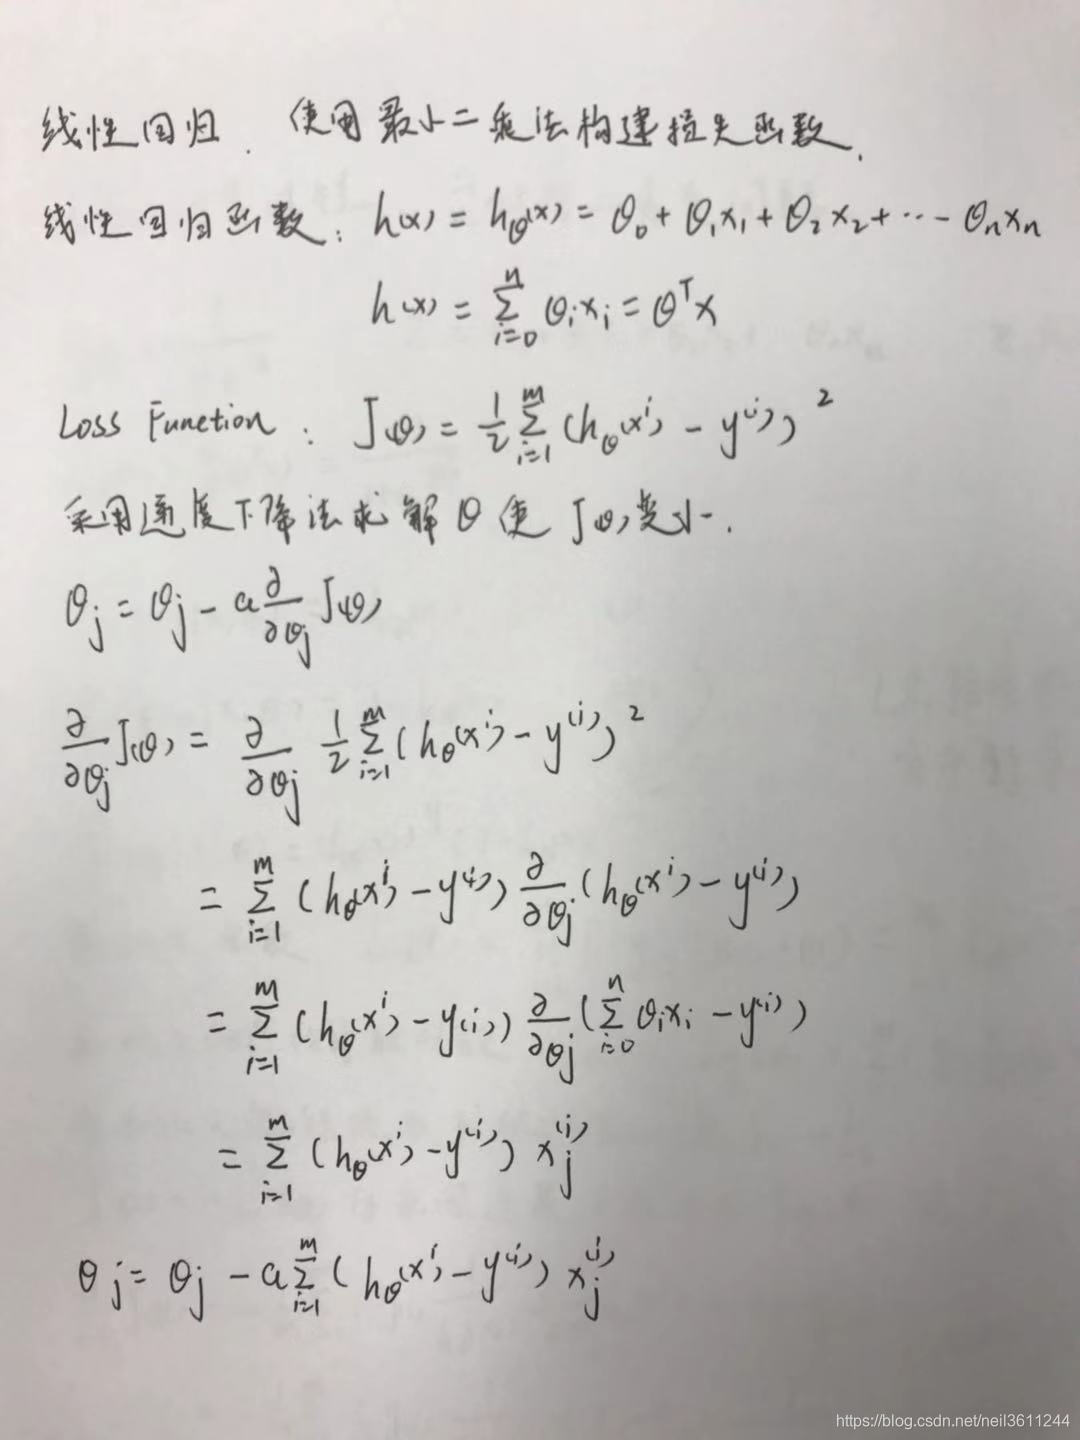 线性回归. 使用最小二乘法构建损失函数.
线性回归函数: h(x) = h_θ(x) = θ_0 + θ_1x_1 + θ_2x_2 + ··· - θ_nx_n
h(x) = Σ_{i=0}^{n} θ_ix_i = θ^T x
Loss Function: J(θ) = 1/2 Σ_{i=1}^{m} (h_θ(x^i) - y^{(i)})^2
采用通度下降法求解θ使J(θ)变小.
θ_j = θ_j - a ∂/∂θ_j J(θ)
∂/∂θ_j J(θ) = ∂/∂θ_j 1/2 Σ_{i=1}^{m} (h_θ(x^i) - y^{(i)})^2
= Σ_{i=1}^{m} (h_θ(x^i) - y^{(i)}) ∂/∂θ_j (h_θ(x^i) - y^{(i)})
= Σ_{i=1}^{m} (h_θ(x^i) - y(i)) ∂/∂θ_j (Σ_{i=0}^{n} θ_ix_i - y^{(i)})
= Σ_{i=1}^{m} (h_θ(x^i) - y^{(i)}) x_j^{(i)}
θ_j = θ_j - a Σ_{i=1}^{m} (h_θ(x^i) - y^{(i)}) x_j^{(i)}
https://blog.csdn.net/neil3611244